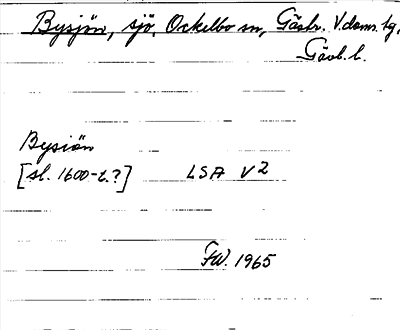 Bysjön, sjö, Ockelbo sn, Gästr. V. doms. tg,
Gävlb. l.
Bysiön
[sl. 1600-t.?] LSA V2
FW. 1965